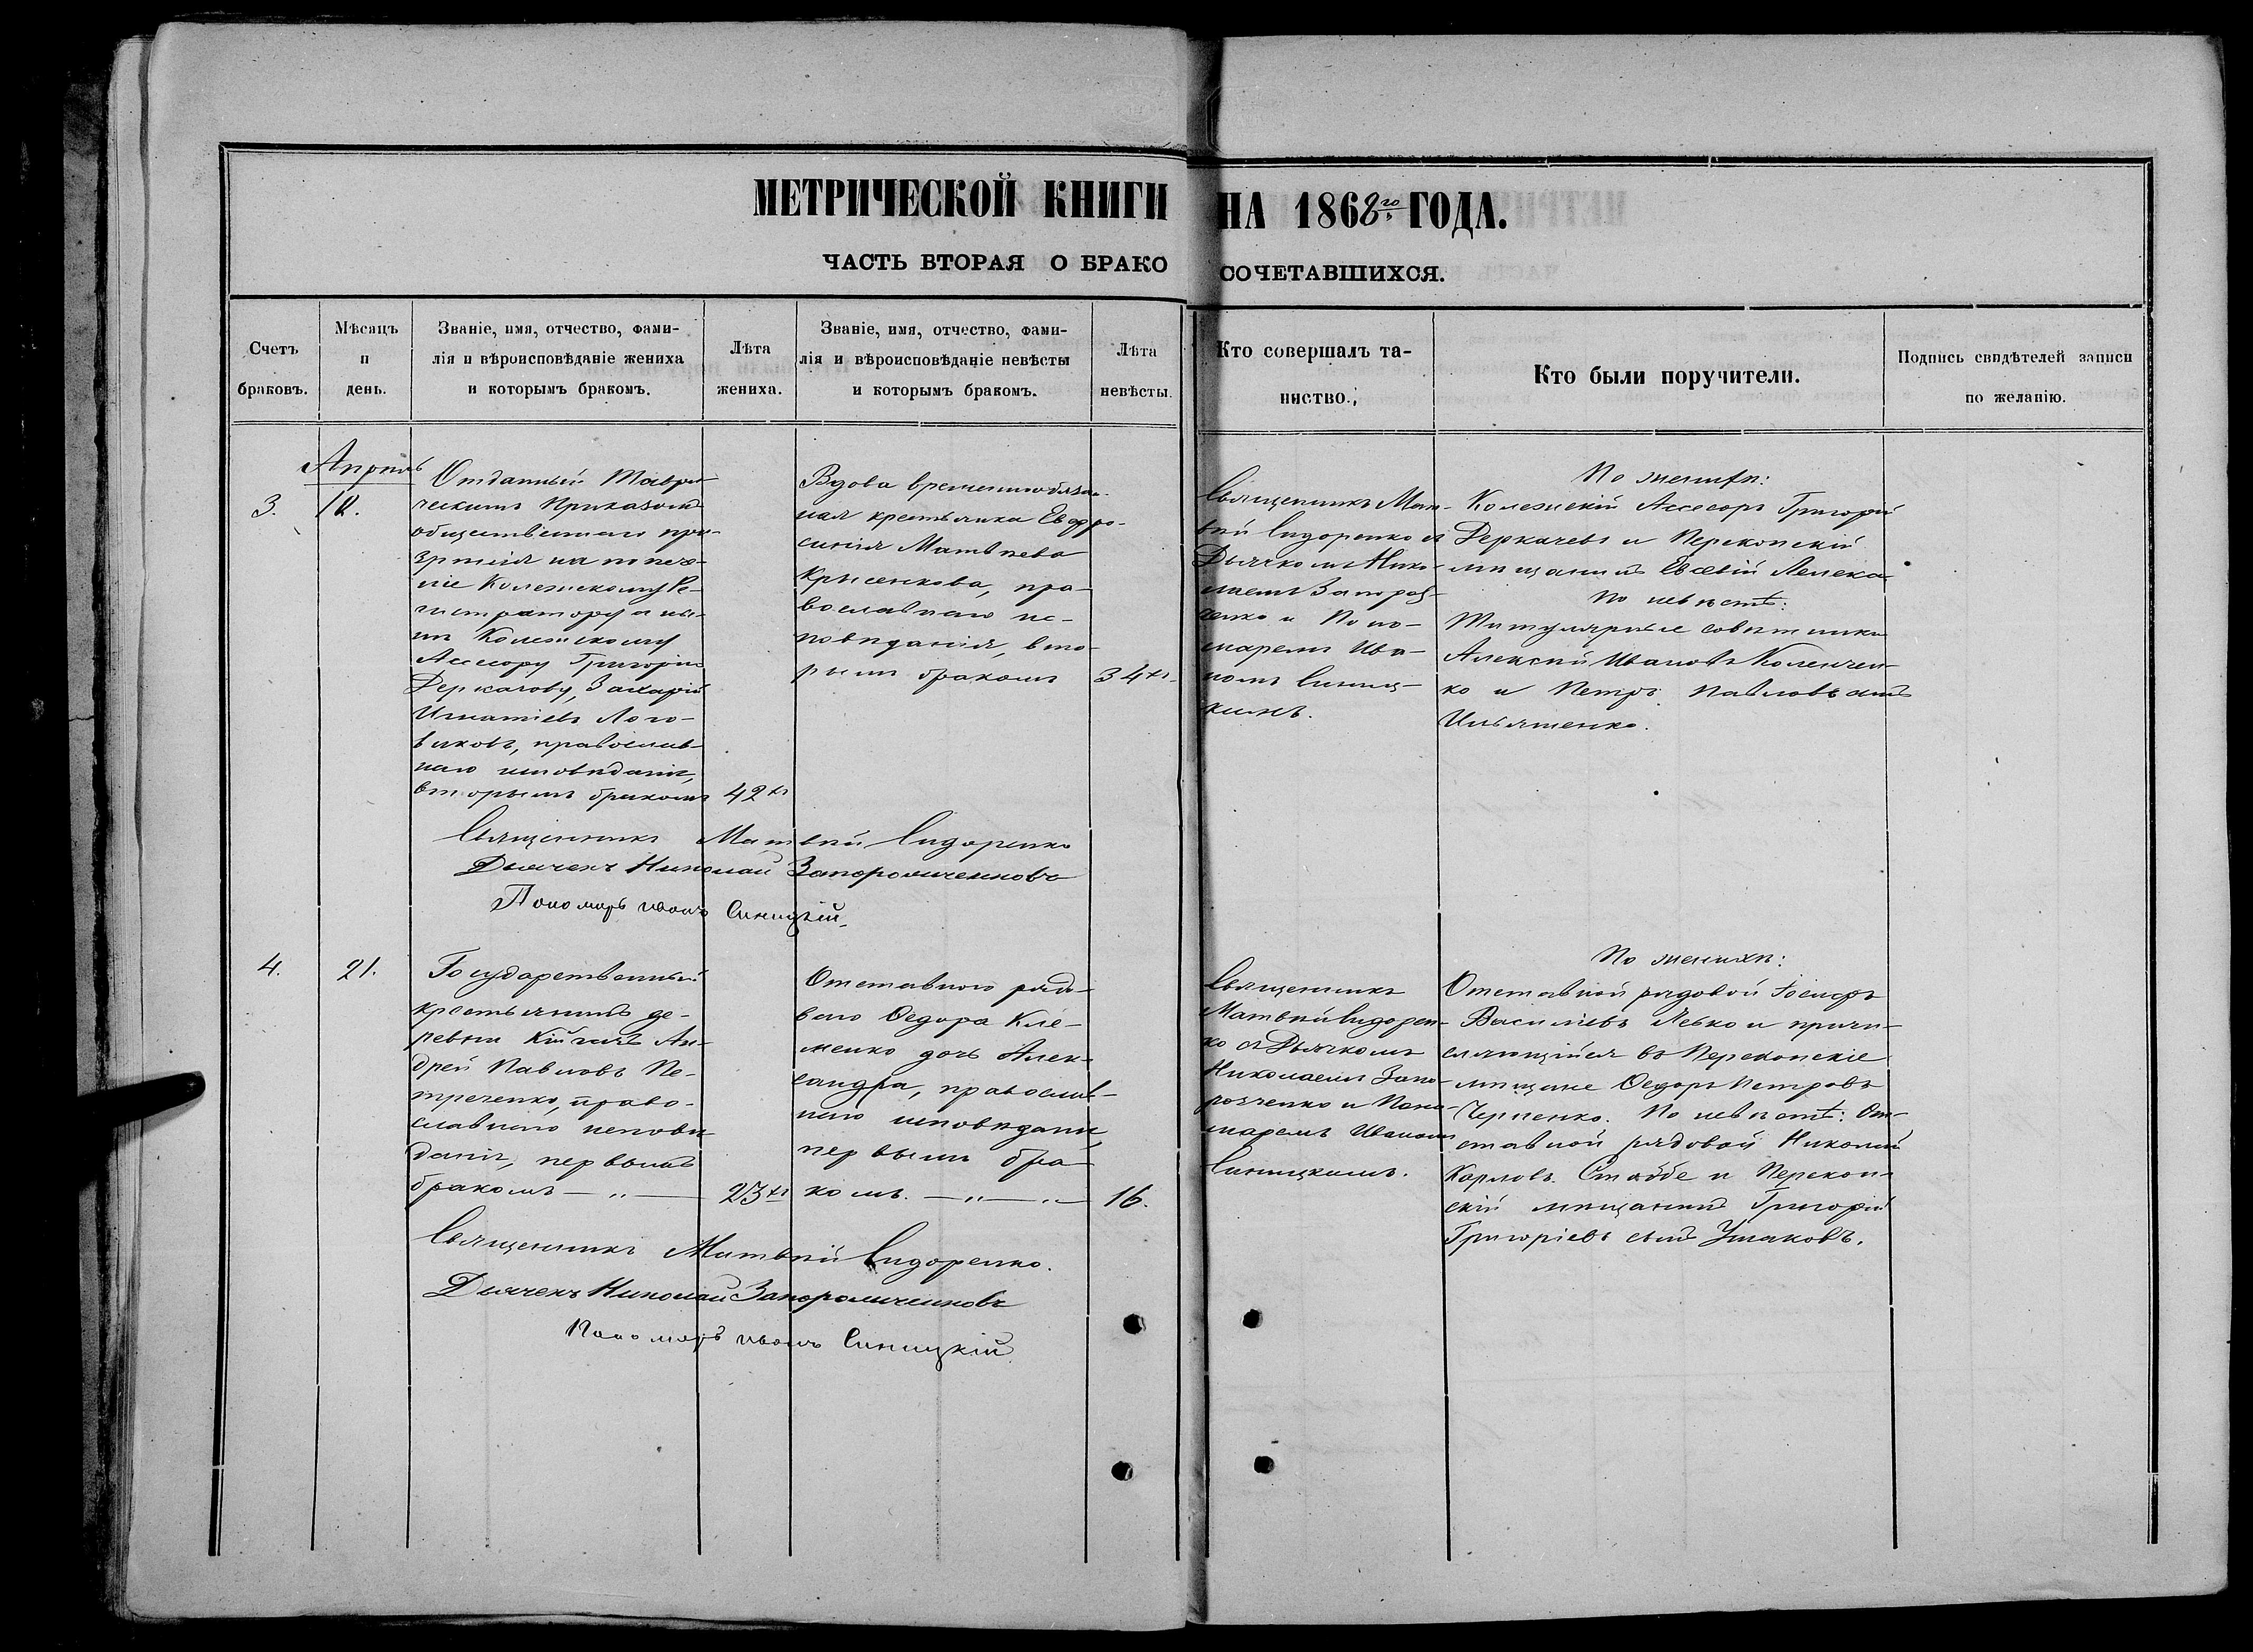 МЕТРИЧЕСКОЙ КНИГИ НА 1868го ГОДА.
ЧАСТЬ ВТОРАЯ О БРАКОСОЧЕТАВШИХСЯ.
Счетъ
браковъ.
Мѣсяцъ
и
день.
Званіе, имя, отчество, фами-
лія и вѣроисповѣданіе жениха
и которымъ бракомъ.
Лѣта
жениха.
Званіе, имя, отчество, фами-
лія и вѣроисповѣданіе невѣсты
и которымъ бракомъ.
Лѣта
невѣсты.
Кто совершалъ та-
инство.
Кто были поручители.
Подпись свидѣтелей записи
по желанію.
3.
Апрѣль
12.
Отданный Таври-
ческимъ Приказомъ
общественнаго при-
зрѣнія на попече-
ніе Колежскому Ре-
гистратору а ны-
нѣ Колежскому
Ассесору Григорію
Деркачову, Захарій
Игнатіевъ Лого-
виковъ, православ-
наго исповѣданія,
вторымъ бракомъ
42хъ
Вдова временнообязан-
ная крестьянка Евфро-
синія Матвѣева
Крысенкова, пра-
вославнаго ис-
повѣданія, вто-
рымъ бракомъ
34хъ
Священникъ Мат-
вѣй Сидоренко съ
Дьячкомъ Нико-
лаемъ Запорож-
ченко и Поно-
маремъ Ива-
номъ Синиц-
кимъ.
По женихѣ:
Колежскій Ассесоръ Григорій
Деркачевъ и Перекопскій
мѣщанинъ Евсевій Лемека
По невѣстѣ:
Титулярные совѣтники
Алексѣй Ивановъ Коленчен-
ко и Петръ Павловъ сынъ
Ильяшенко.
Священникъ Матвѣй Сидоренко
Дьячекъ Николай Запорожченковъ
Пономарь Иванъ Синицкій.
4.
21.
Государственный
крестьянинъ де-
ревни Кійгачъ Ан-
дрей Павловъ Пе-
треченко, право-
славнаго исповѣ-
данія, первымъ
бракомъ — „ —
23хъ
Отставного рядо-
вого Ѳедора Кле-
менко дочь Алек-
сандра, православ-
наго исповѣданія,
первымъ бра-
комъ. — „ — „ —
16.
Священникъ
Матвѣй Сидорен-
ко съ Дьячкомъ
Николаемъ Запо-
рожченко и Поно-
маремъ Иваномъ
Синицкимъ.
По женихѣ:
Отставной рядовой Іосифъ
Василіевъ Левко и причи-
сляющійся въ Перекопскіе
мѣщане Ѳедоръ Петровъ
Черненко. По невѣстѣ: От-
ставной рядовой Николай
Карловъ Стаббе и Перекоп-
скій мѣщанинъ Григорій
Григоріевъ сынъ Ушаковъ.
Священникъ Матвѣй Сидоренко.
Дьячекъ Николай Запорожченковъ
Пономарь Иванъ Синицкій